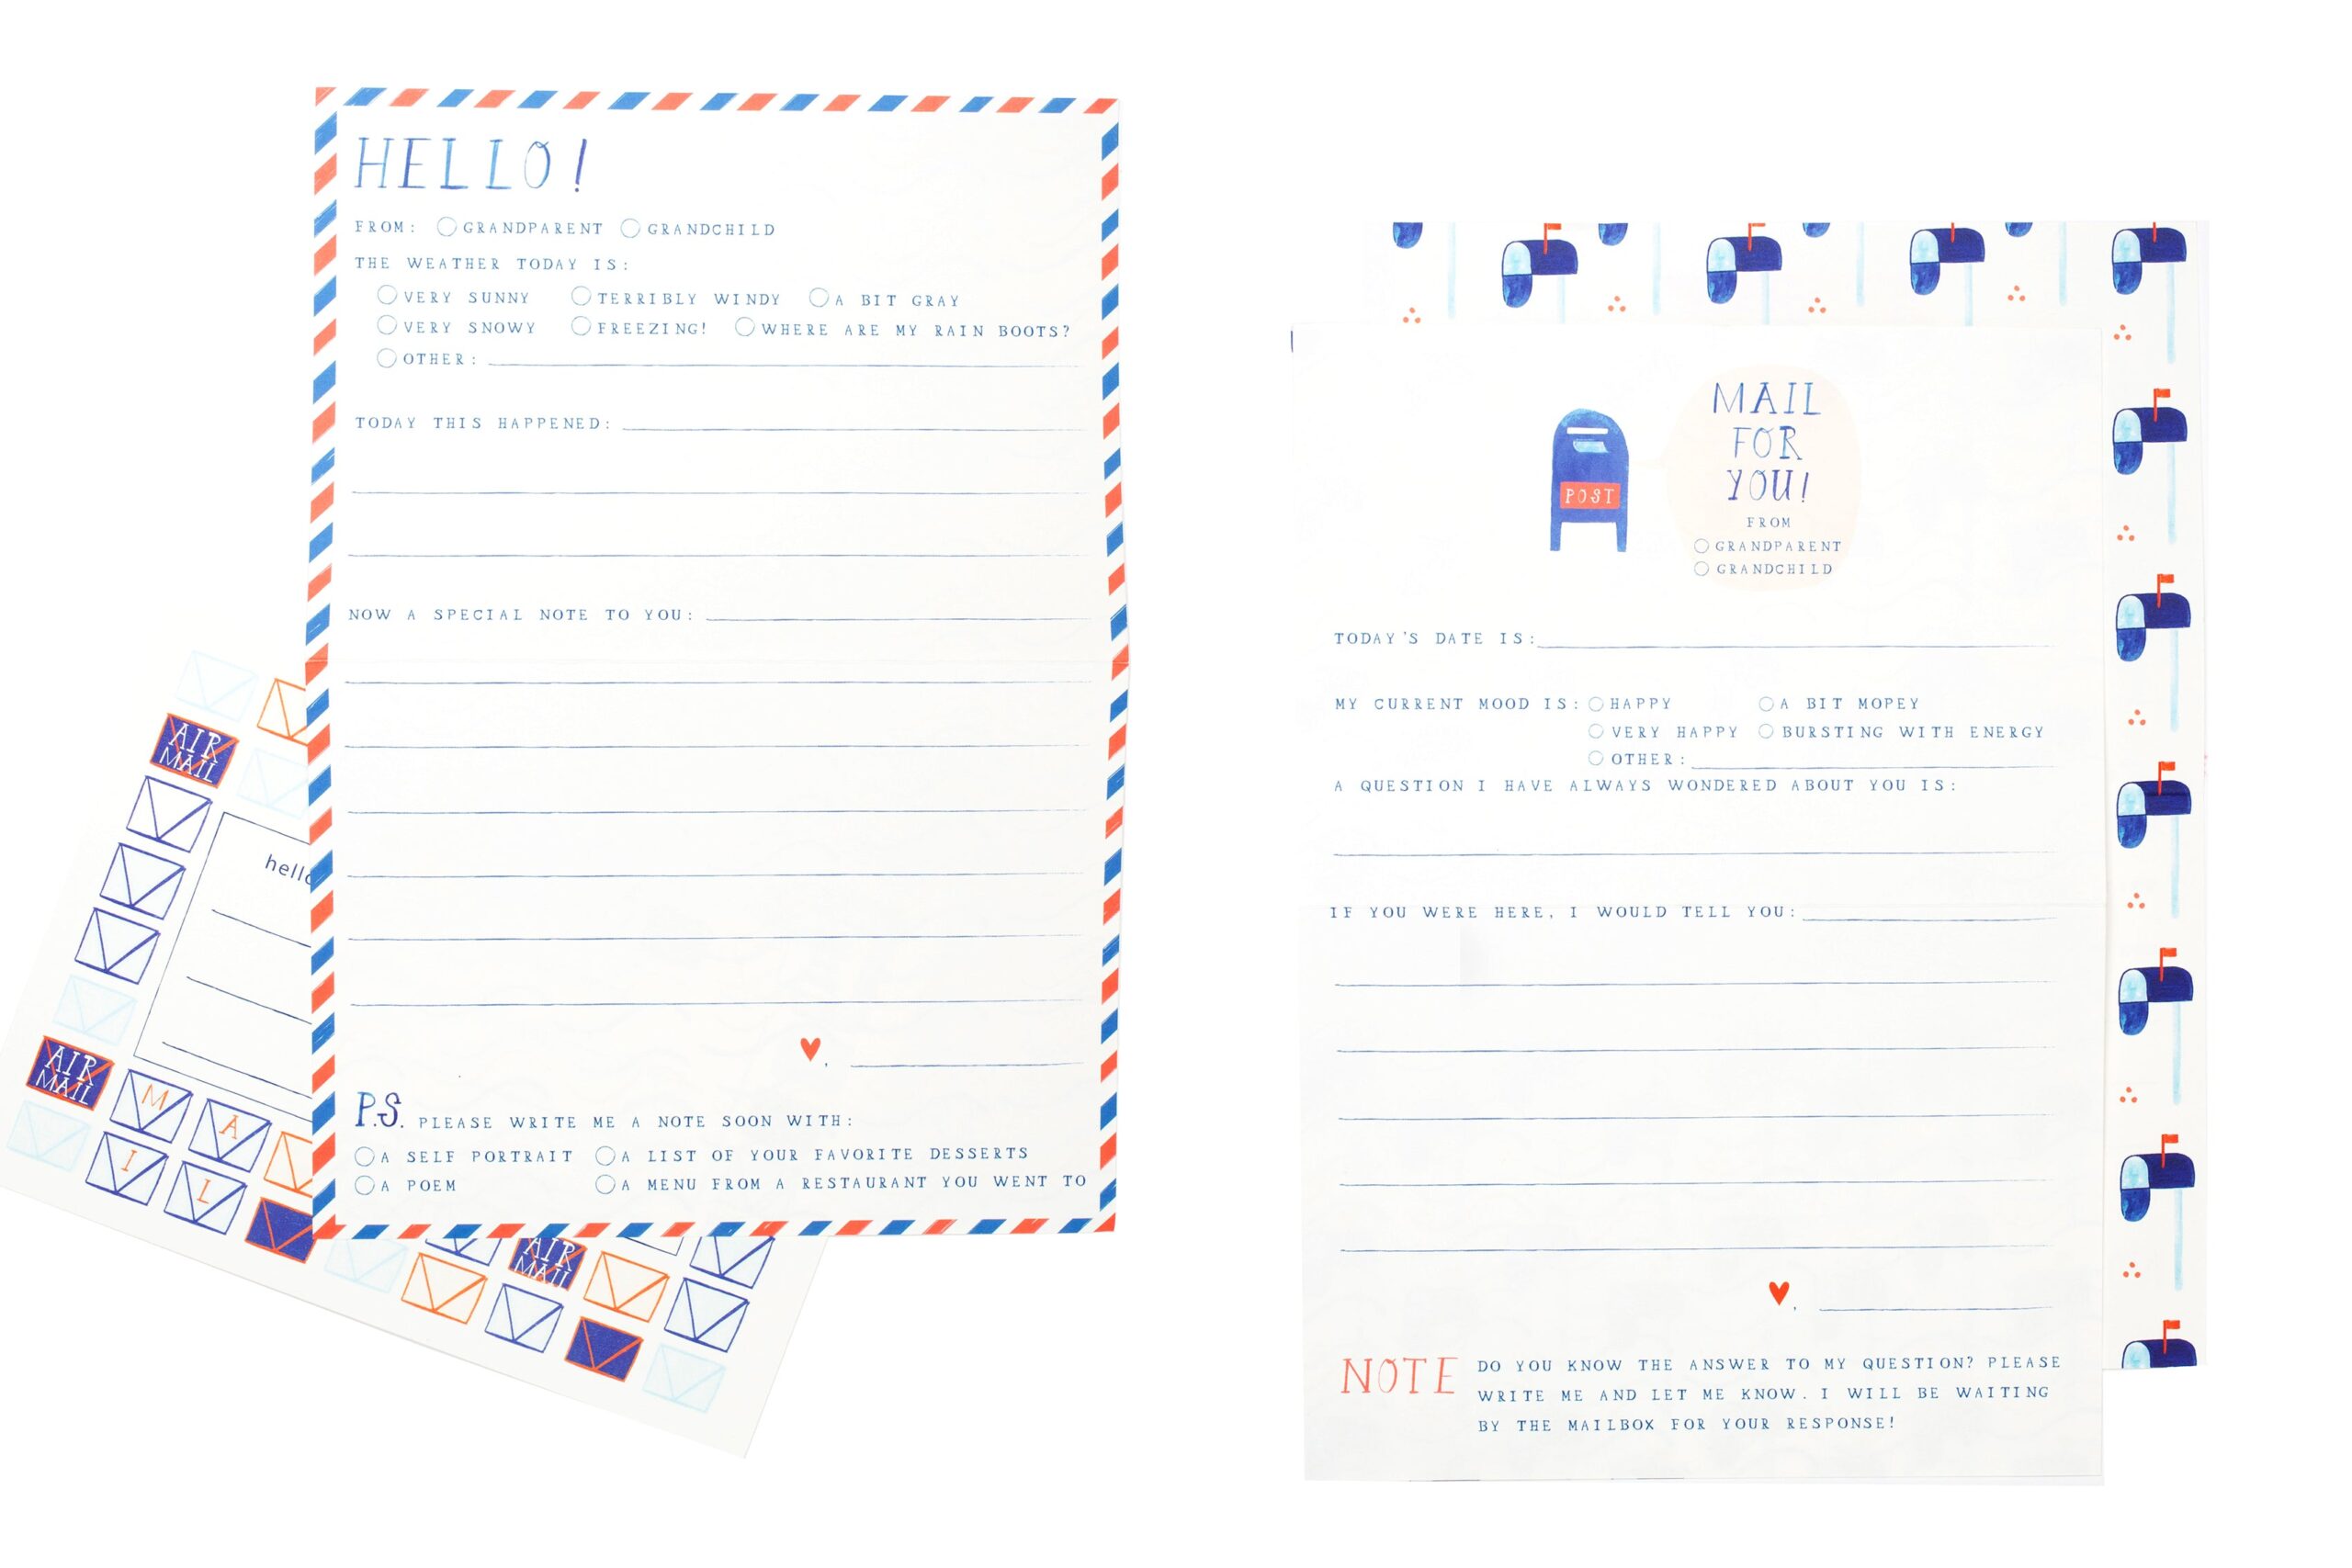 HELLO!
FROM: GRANDPARENT GRANDCHILD
THE WEATHER TODAY IS:
VERY SUNNY TERRIBLY WINDY A BIT GRAY
VERY SNOWY FREEZING! WHERE ARE MY RAIN BOOTS?
OTHER:
TODAY THIS HAPPENED:
NOW A SPECIAL NOTE TO YOU:
P.S. PLEASE WRITE ME A NOTE SOON WITH:
A SELF PORTRAIT A LIST OF YOUR FAVORITE DESSERTS
A POEM A MENU FROM A RESTAURANT YOU WENT TO
AIR
MAIL
hello
AIR
MAIL
M A
I L
AIR
MAIL
MAIL
FOR
YOU!
POST
FROM
GRANDPARENT
GRANDCHILD
TODAY'S DATE IS:
MY CURRENT MOOD IS: HAPPY A BIT MOPEY
VERY HAPPY BURSTING WITH ENERGY
OTHER:
A QUESTION I HAVE ALWAYS WONDERED ABOUT YOU IS:
IF YOU WERE HERE, I WOULD TELL YOU:
NOTE DO YOU KNOW THE ANSWER TO MY QUESTION? PLEASE
WRITE ME AND LET ME KNOW. I WILL BE WAITING
BY THE MAILBOX FOR YOUR RESPONSE!